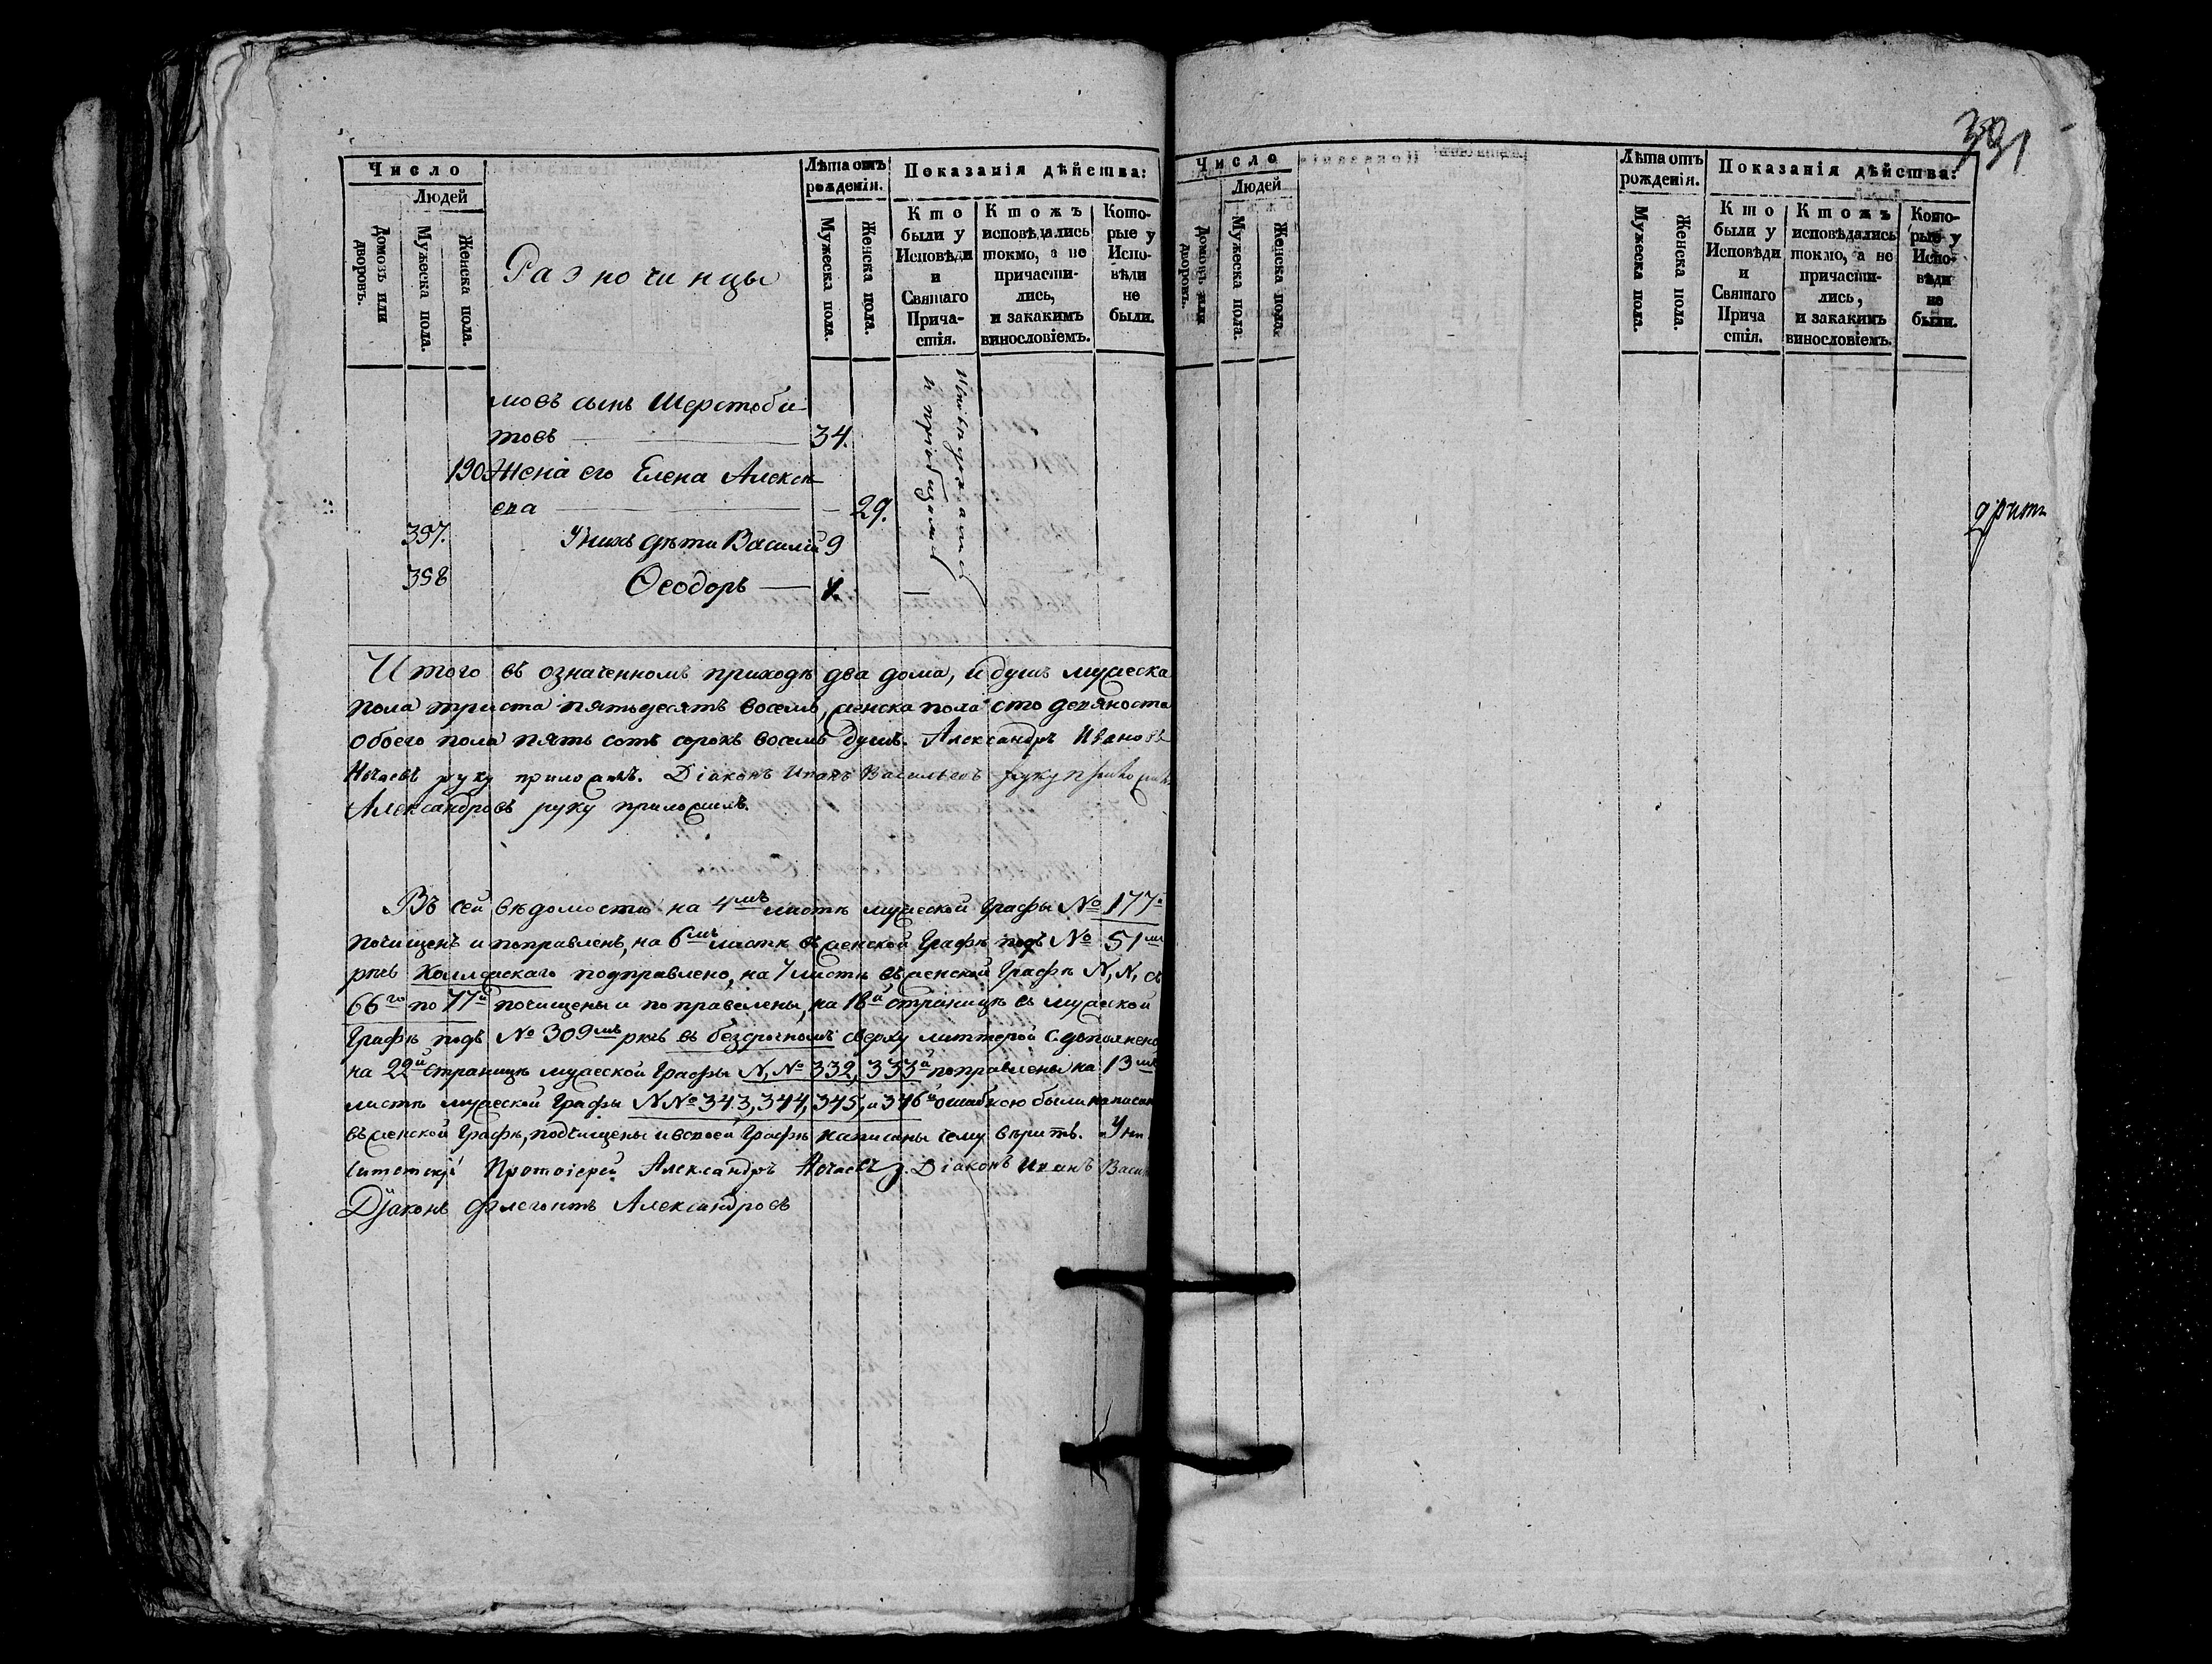 Число
Людей
Домовъ или дворовъ.
Мужеска пола.
Женска пола.
Разночинцы
Лѣта отъ рожденія.
Мужеска пола.
Женска пола.
Показанія дѣйства:
Кто были у Исповѣди и Святаго Прича-стія.
Ктожъ исповѣдались токмо, а не причасти-лись, и закакимъ винословіемъ.
Кото-рые у Испо-вѣди не были.
мовъ сынъ Шерстоби
товъ 34.
190 Жена его Елена Алексѣ
ева 29.
Исповѣдались
и пріобщались
397. У нихъ дѣти Василій 9
398 Ѳеодоръ
Итого въ означенномъ приходѣ два дома, и душъ мужеска
пола триста пятьдесятъ восемь, женска пола сто девяноста
обоего пола пять сотъ сорокъ восемь душъ. Александръ Ивановъ
Нечаевъ руку приложилъ. Діаконъ Иванъ Васильевъ руку приложилъ
Александровъ руку приложилъ.
Въ сей вѣдомости на 4мъ листѣ мужеской Графы № 177й
почищенъ и поправленъ, на 6мъ листѣ въ женской Графѣ подъ № 51мъ
подправлено, на 7 листѣ въ женской Графѣ N, N, съ
66го по 77й почищены и поправлены, на 18й страницѣ въ мужеской
Графѣ подъ № 309мъ рѣчь въ безсрочномъ сверху литтерой С дополнено
на 22й страницѣ мужеской Графы N, № 332, 333й поправлены на 13мъ
листѣ мужеской Графы N№ 343, 344, 345, и 346й ошибкою были написаны
въ женской Графѣ, подчищены и въ своей Графѣ написаны сему вѣрить.
Протоіерей Александръ Нечаевъ. Діаконъ Иванъ
Діаконъ Флегонтъ Александровъ
391
Число
Людей
Домовъ или дворовъ.
Мужеска пола.
Женска пола.
Лѣта отъ рожденія.
Мужеска пола.
Женска пола.
Показанія дѣйства:
Кто были у Исповѣди и Святаго Прича стія.
Ктожъ исповѣдались токмо, а не причасти-лись, и закакимъ винословіемъ.
Кото-рые у Испо-вѣди не были.